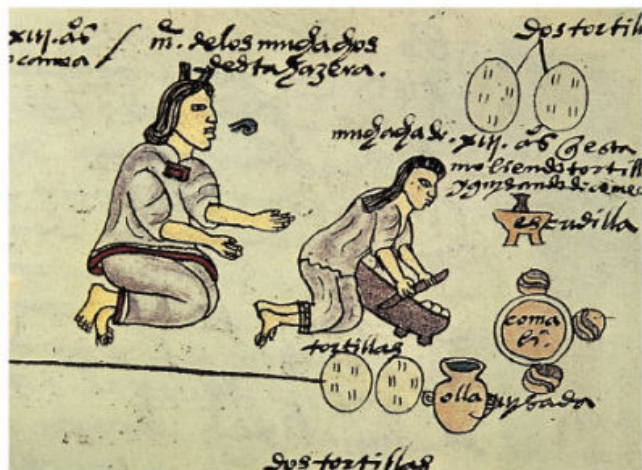 xiij. aº
m. de los muchachos
desta hazera.
dos tortill
muchacha de. xiij. aºs q̃ esta
moliendo tortill
y guisando de comer
escudilla
comali.
tortillas
olla
guisada
dos tortillas